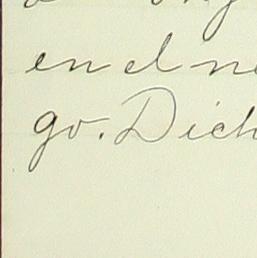 en el ne
go. Dich